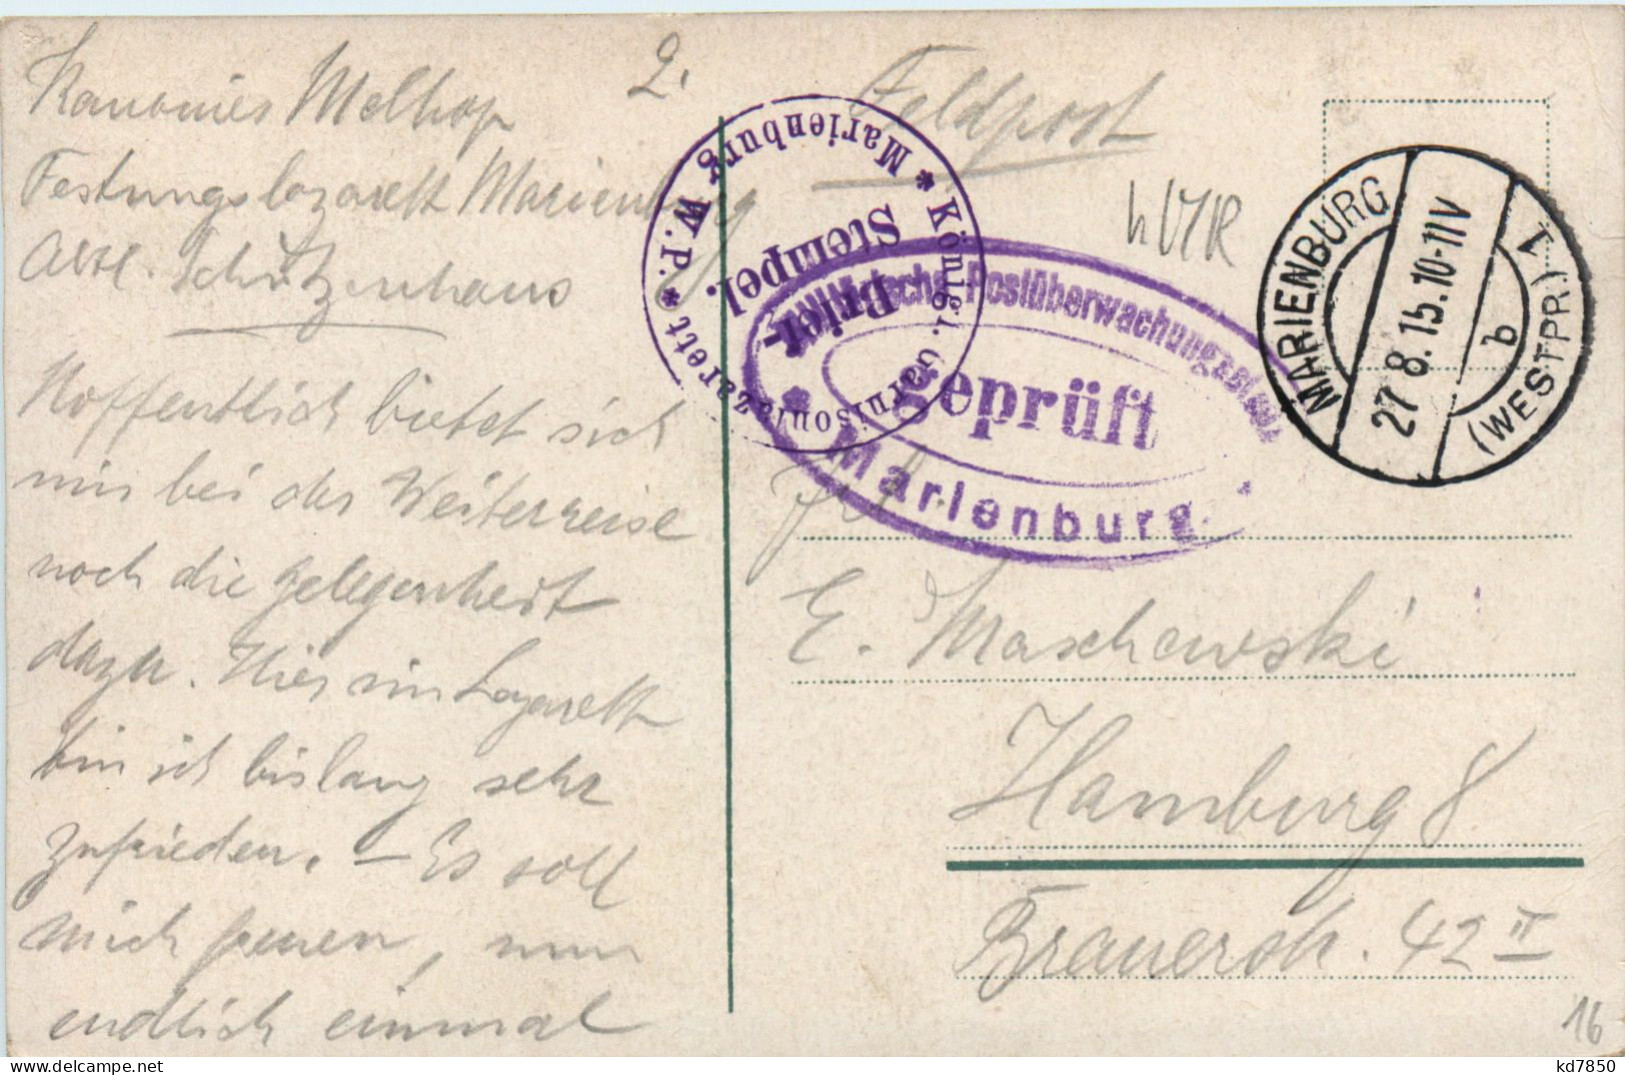 Kanonier Melhop
Festungslazarett Marienburg
Abtl. Schützenhaus
Hoffentlich bietet sich
mir bei der Weiterreise
noch die Gelegenheit
dazu. Hier im Lazarett
bin ich bislang sehr
zufrieden. — Es soll
mich freuen, nun
endlich einmal
2.
Feldpost
* Königl. Garnisonlazarett * Marienburg W. P.
Brief-
Stempel.
Postüberwachungsstelle
geprüft
Marienburg
MARIENBURG
27 8. 15. 10-11V
(WESTPR.) 1
b
Frl.
E. Maschewski
Hamburg 8
Brauerstr. 42 II
16
kd7850